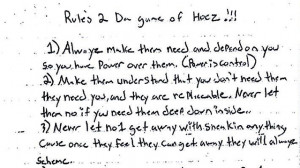 Rules 2 Da game of Hoez !!!
1) Always make them need and depend on you
so you have Power over them. (Power is control)
2) Make them understand that you don't need them
they need you, and they are replicable. Never let
them no if you need them deep down inside...
3) Never let no 1 get away with sneakin any thing
Cause once they feel they can get away they will always
scheme.